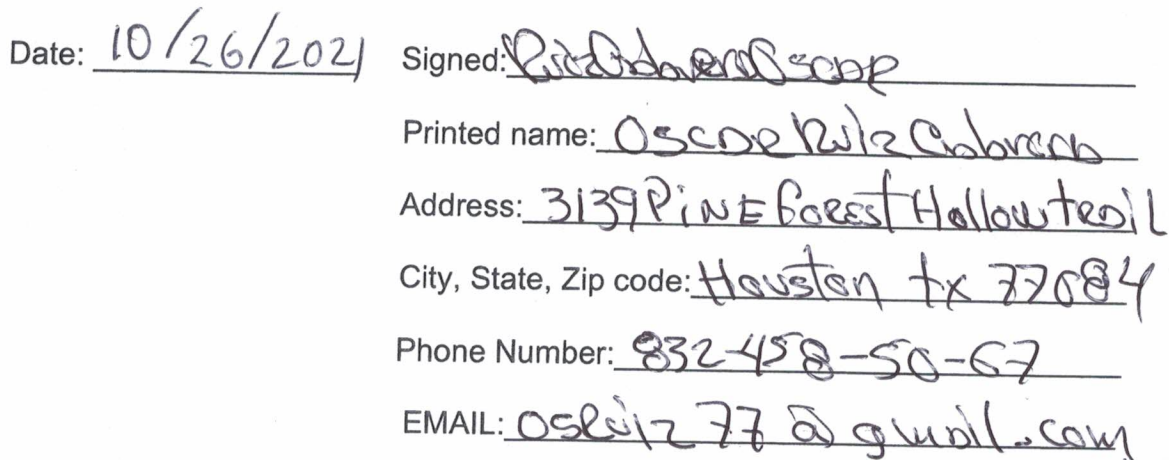 Date: 10/26/2021 Signed:
Printed name: Oscar Ruiz Cabrera
Address: 3139 PiNE Forest Hollow trail
City, State, Zip code: Houston tx 77084
Phone Number: 832-458-50-67
EMAIL: OSRuiz77@gmail.com